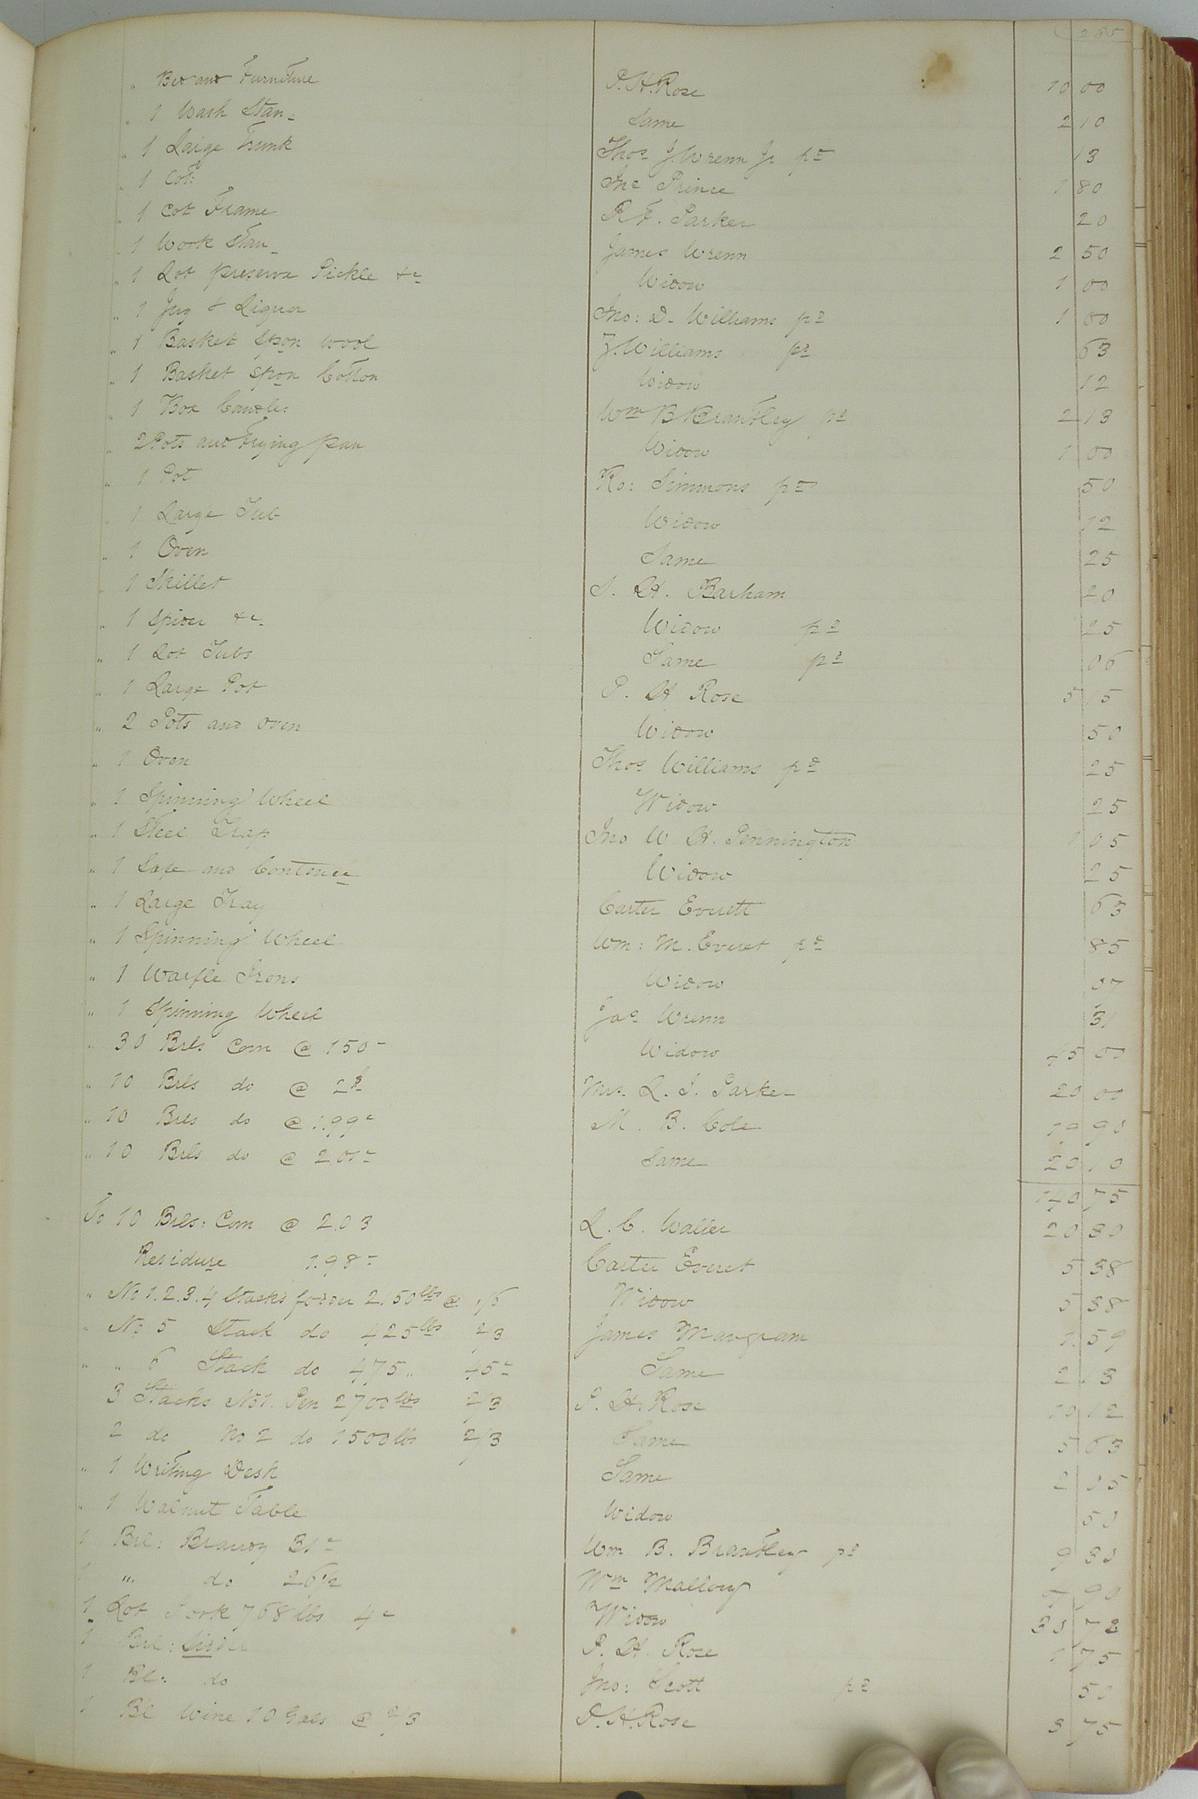 265
" Bed and Furniture P. H. Rose 10 00
" 1 Wash Stan- Same 2 10
" 1 Large Trunk Thos J. Wrenn Jr pd 13
" 1 Cot Jno Prince 1 80
" 1 Cot Frame R. F. Parker 20
" 1 Work Stan- James Wrenn 2 50
" 1 Lot preserve Pickle &c Widow 1 00
" 1 Jug & Liquor Jno: D. Williams pd 1 80
" 1 Basket Spon wool J. Williams pd 63
" 1 Basket Spon Cotton Widow 12
" 1 Box Candles Wm B Brantley pd 2 13
" 2 Pots and Frying pan Widow 1 00
" 1 Pot Ro: Simmons pd 50
" 1 Large Tub Widow 12
" 1 Oven Same 25
" 1 Skillet S. H. Barham 20
" 1 Spider &c. Widow pd 25
" 1 Lot Tubs Same pd 06
" 1 Large Pot P. H Rose 5 5
" 2 Pots and oven Widow 50
" 1 Oven Thos Williams pd 25
" 1 Spinning Wheel Widow 25
" 1 Steel Trap Jno W H. Pennington 1 05
" 1 Safe and Contence Widow 25
" 1 Large Tray Carter Everett 63
" 1 Spinning Wheel Wm: M. Everet pd 85
" 1 Waffle Irons Widow
" 1 Spinning Wheel Jas Wrenn 31
" 30 Brls Corn @ 1.50 Widow 45 00
" 10 Brls do @ 2$ Mrs. L. S. Parker 20 00
" 10 Brls do @ 1.99c M. B. Cole 19 90
" 10 Brls do @ 2.01c Same 20 10
140 75
To 10 Brls: Corn @ 2.03 L. C. Waller 20 30
Residure 1.98c Carter Everet 5 38
" No 1.2.3.4 Stacks fodder 2150 lbs @ Widow 5 38
" No 5 Stack do 425 lbs 2/3 James Mangram 1.59
" " 6 Stack do 475 " 45c Same 2.13
3 Stacks No 1. Pen 2700 lbs 2/3 P. H. Rose 10 12
2 do No 2 do 1500 lbs 2/3 Same 5 63
" 1 Writing Desk Same 2 05
" 1 Walnut Table Widow 50
1 Brl: Brandy 31c Wm B. Brantley pd 9 30
1 " do 26 1/2 Wm Mallory 90
1 Lot Pork 768 lbs 4c Widow 30 72
1 Brl: P. H. Rose 1 75
1 Bl: do Jno: Scott pd 50
1 Bl Wine 10 Gals @ 2/3 P. H. Rose 3 75